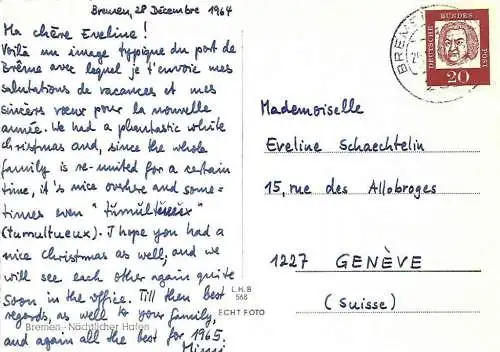 Bremen, 28 Décembre 1964
Ma chère Eveline!
Voilà un image typique du port de
Brême avec lequel je t'envoie mes
salutations de vacances et mes
sincères vœux pour la nouvelle
année. We had a phantastic white
Christmas and, since the whole
family is re-united for a certain
time, it's nice overhere and some-
times even "
(tumultueux). I hope you had a
nice Christmas as well, and we
will see each other again quite
soon in the office. Till then best
regards, as well to your family,
and again all the best for 1965.
Mademoiselle
Eveline Schaechtelin
15, rue des Allobroges
1227 GENÈVE
(Suisse)
Bremen - Nächtlicher Hafen
L.H.B
568
ECHT FOTO
BREMEN
DEUTSCHE BUNDES
POST
20